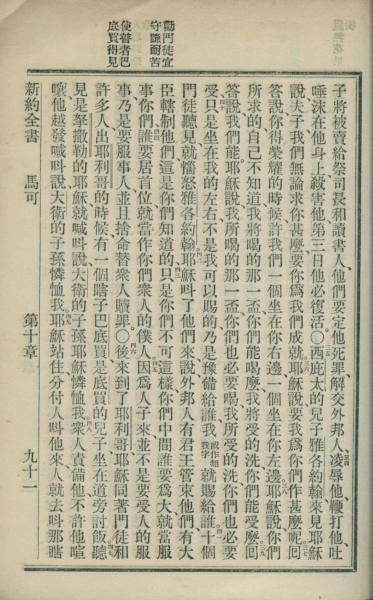 勸門徒宜
守謙耐苦
使瞽者巴
底買得見
子將被賣給祭司長和讀書人他們要定他死罪解交外邦人凌辱他鞭打他吐
唾沫在他身上殺害他第三日他必復活○西庇太的兒子雅各約翰來見耶穌
說夫子我們無論求你甚麽要你爲我們成就耶穌說要我爲你們作甚麽呢囘
答說你得榮耀的時候許我們一個坐在你右邊一個坐在你左邊耶穌說你們
所求的自己不知道我將喝的那一盃你們能喝麽我將受的洗你們能受麽囘
答說我們能耶穌說我所喝的那一盃你們也必要喝我所受的洗你們也必要
受只是坐在我的左右不是我可以賜的乃是豫備給誰我就賜給誰十個
門徒聽見就惱怒雅各約翰耶穌呌了他們來說外邦人有君王管束他們有大
臣轄制他們這是你們知道的只是你們不可這樣你們中間誰要爲大就當服
事你們誰要居首位就當作你們衆人的僕人因爲人子來並不是要受人的服
事乃是要服事人並且捨命替衆人贖罪○後來到了耶利哥耶穌同著門徒和
許多人出耶利哥的時候有一個瞎子巴底買是底買的兒子坐在道旁討飯聽
見是拏撒勒的耶穌就喊呌說大衛的子孫耶穌憐恤我衆人責備他不許他喧
嚷他越發喊呌說大衛的子孫憐恤我耶穌站住分付人呌他來人就去呌那瞎
新約全書 馬可 第十章 九十二